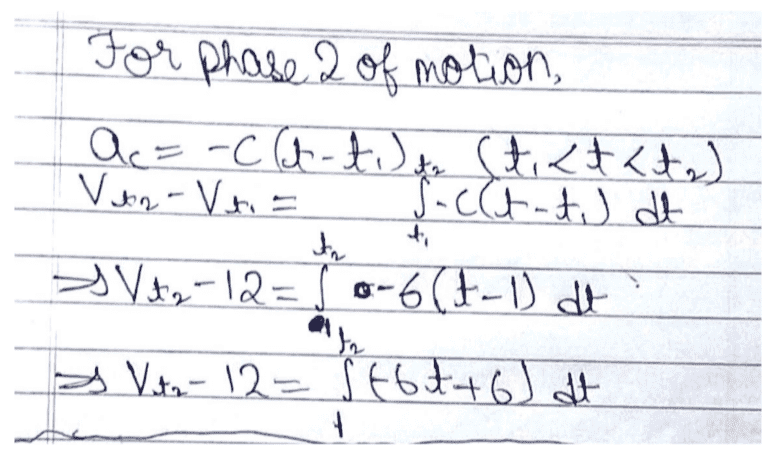 For phase 2 of motion,
ac = -c(t-t₁) (t₁<t<t₂)
Vt₂ - Vt₁ = ∫t₁^t₂ -c(t-t₁) dt
⇒ Vt₂ - 12 = ∫1^t₂ -6(t-1) dt
⇒ Vt₂ - 12 = ∫1^t₂ (-6t+6) dt